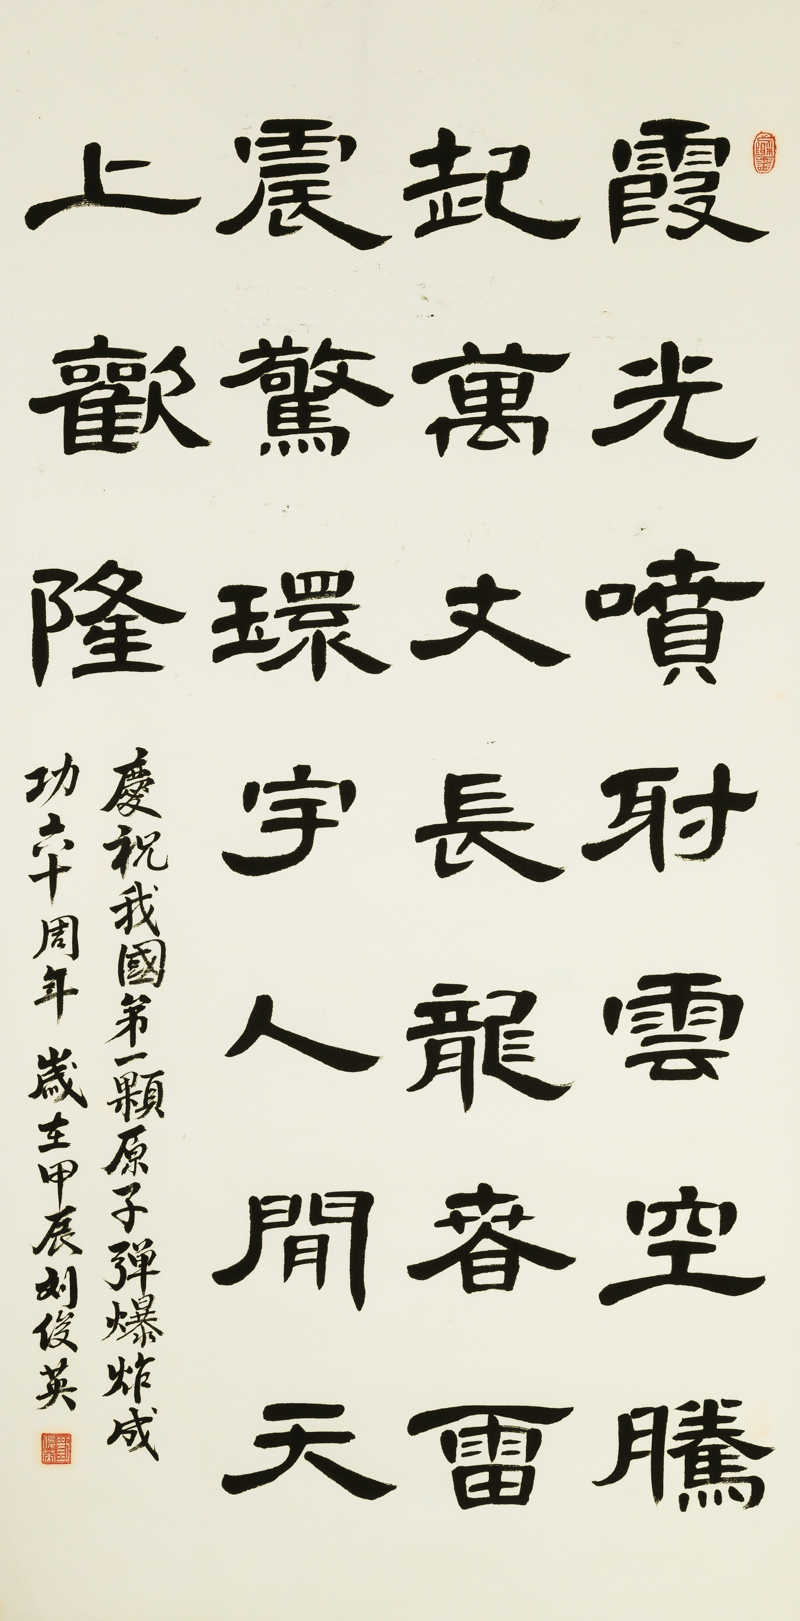 霞光噴射雲空騰
起萬丈長龍春雷
震驚環宇人間天
上歡隆
慶祝我國第一顆原子彈爆炸成
功六十周年 歲在甲辰劉俊英